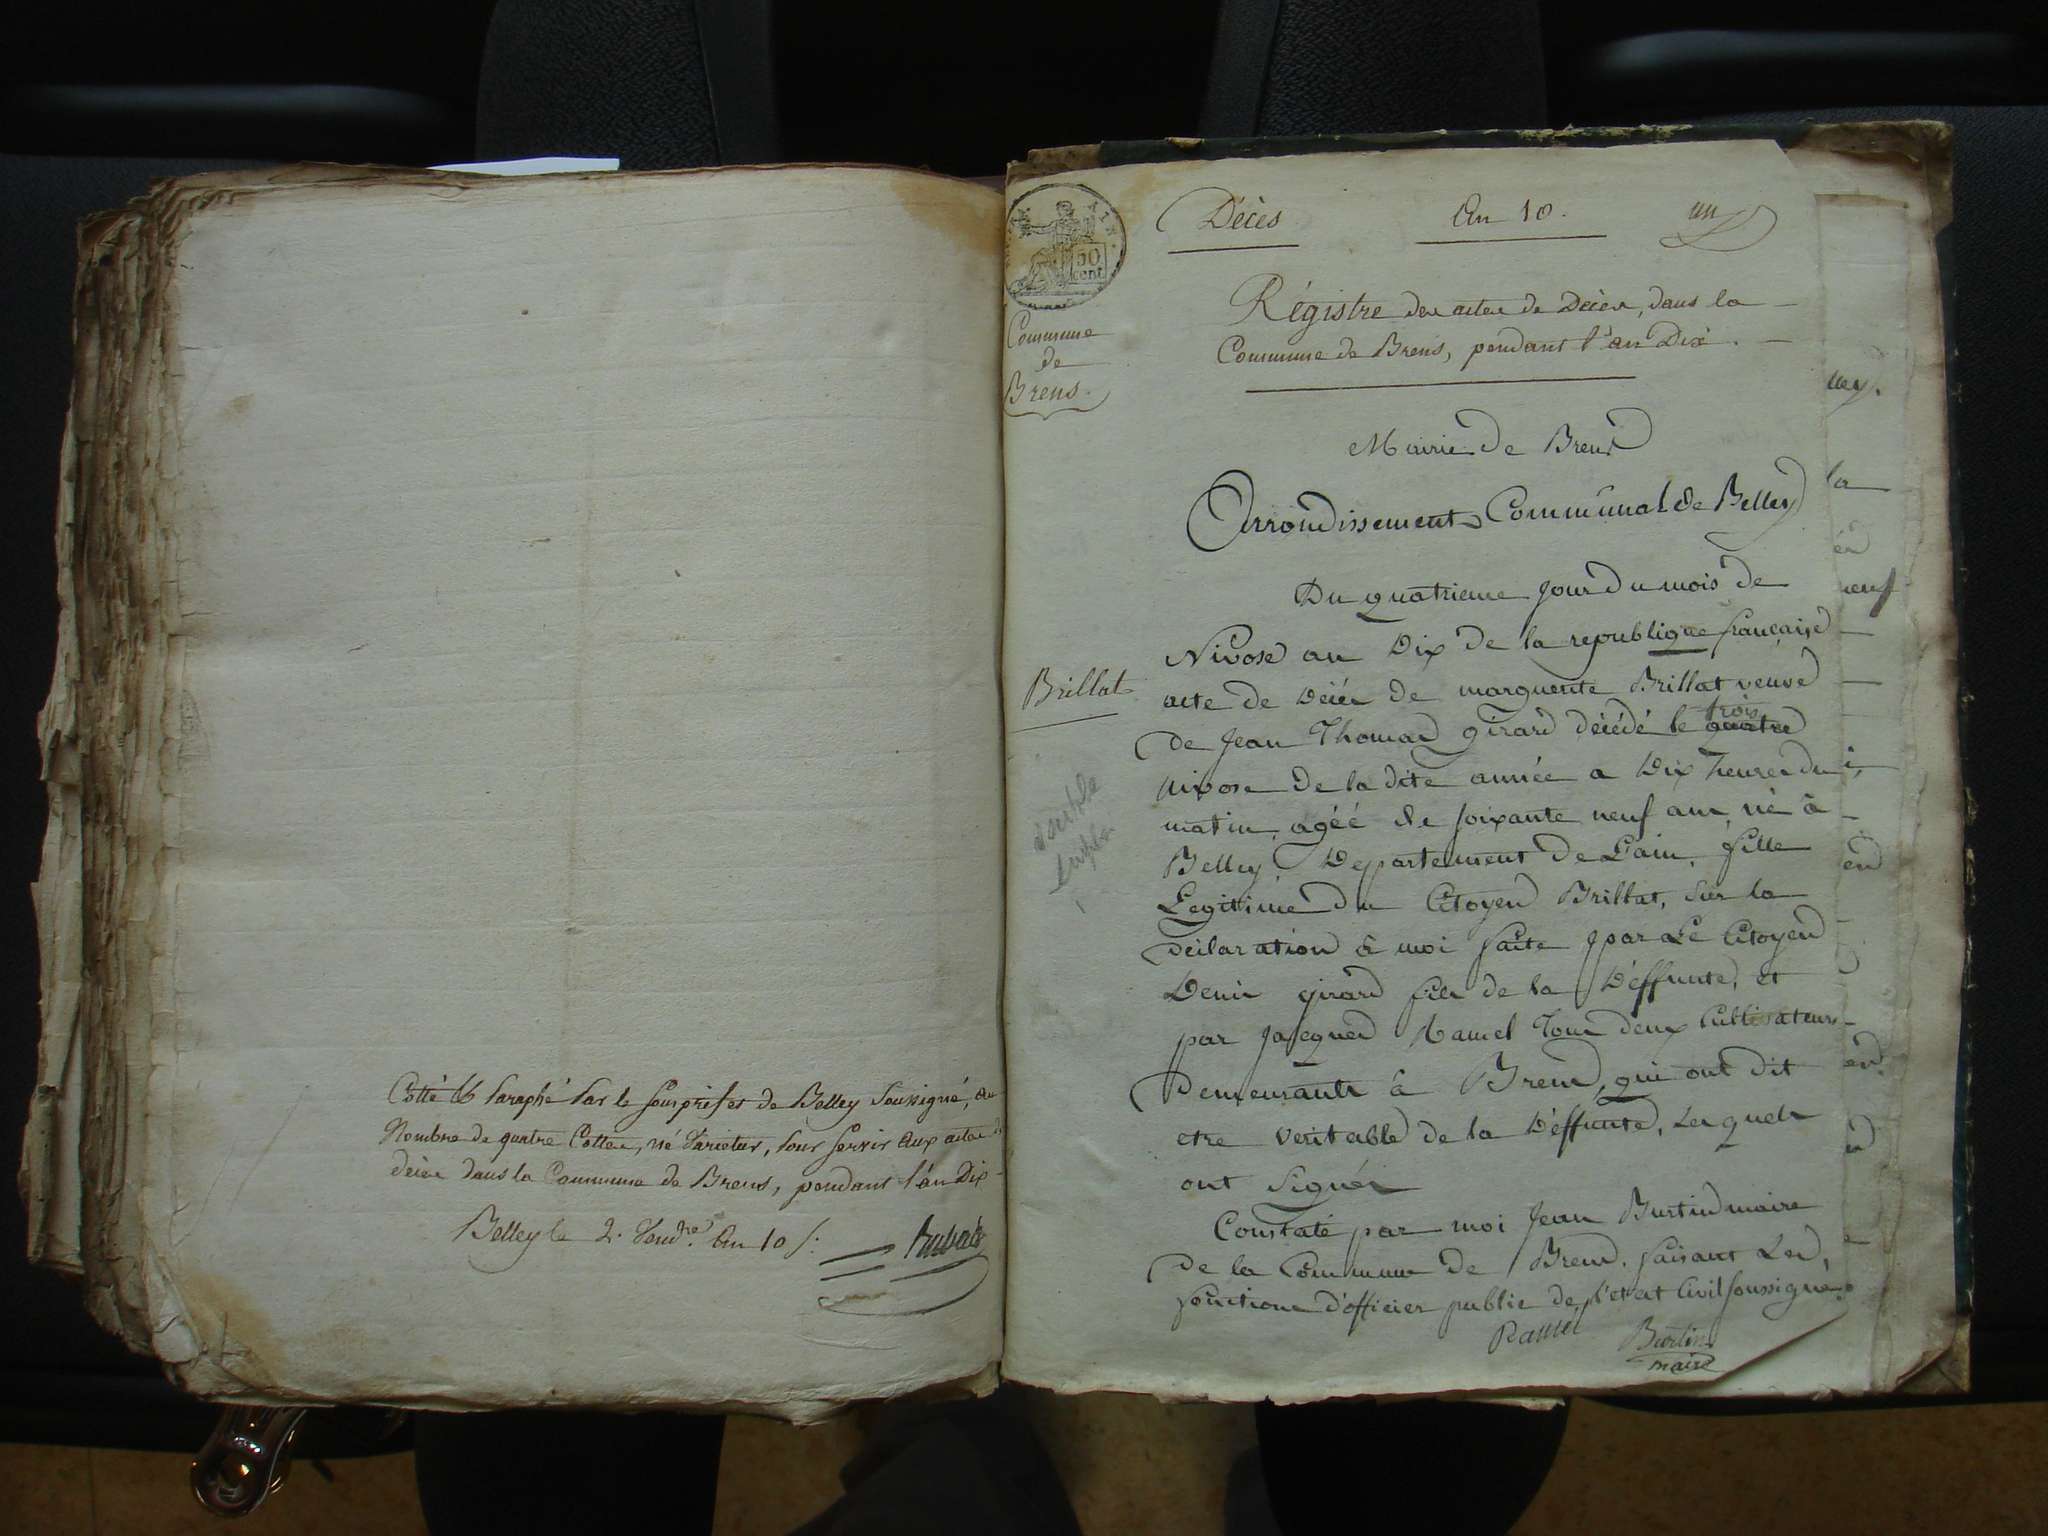 Cotté et Paraphé Par le souspréfet de Belley soussigné, au
Nombre de quatre Cottes, né Varietur, Pour servir aux actes de
décès dans la Commune de Brens, pendant l'an Dix
Belley le 2. Vend.re An 10 /.
Décès
An 10.
un
50
cent
Commune
de
Brens.
Régistre des actes de Décès, dans la
Commune de Brens, pendant l'an Dix.
Mairie de Brens
Arrondissement Communal de Belley
Du quatrieme jour du mois de
Nivose an Dix de la republique française
Brillat
acte de décès de marguerite Brillat veuve
trois
de Jean Thomas girard décédé le quatre
nivose de la dite année a Dix heures du
matin, agéé de soixante neuf ans, né à
Belley Departement de L'ain, fille
Legitime du Citoyen Brillat, sur la
déclaration à moi faite par Le Citoyen
Denis girard fils de la Déffunte, et
par Jacques Ramel tous deux Cultivateurs
demeurants à Brens, qui ont dit
etre veritable de la Déffunte, Lesquels
ont signés
Constaté par moi Jean Burtin maire
de la Commune de Brens faisant Les
fonctions d'officier public de l'etat Civil soussigné.
Ramel
Burtin
maire
double